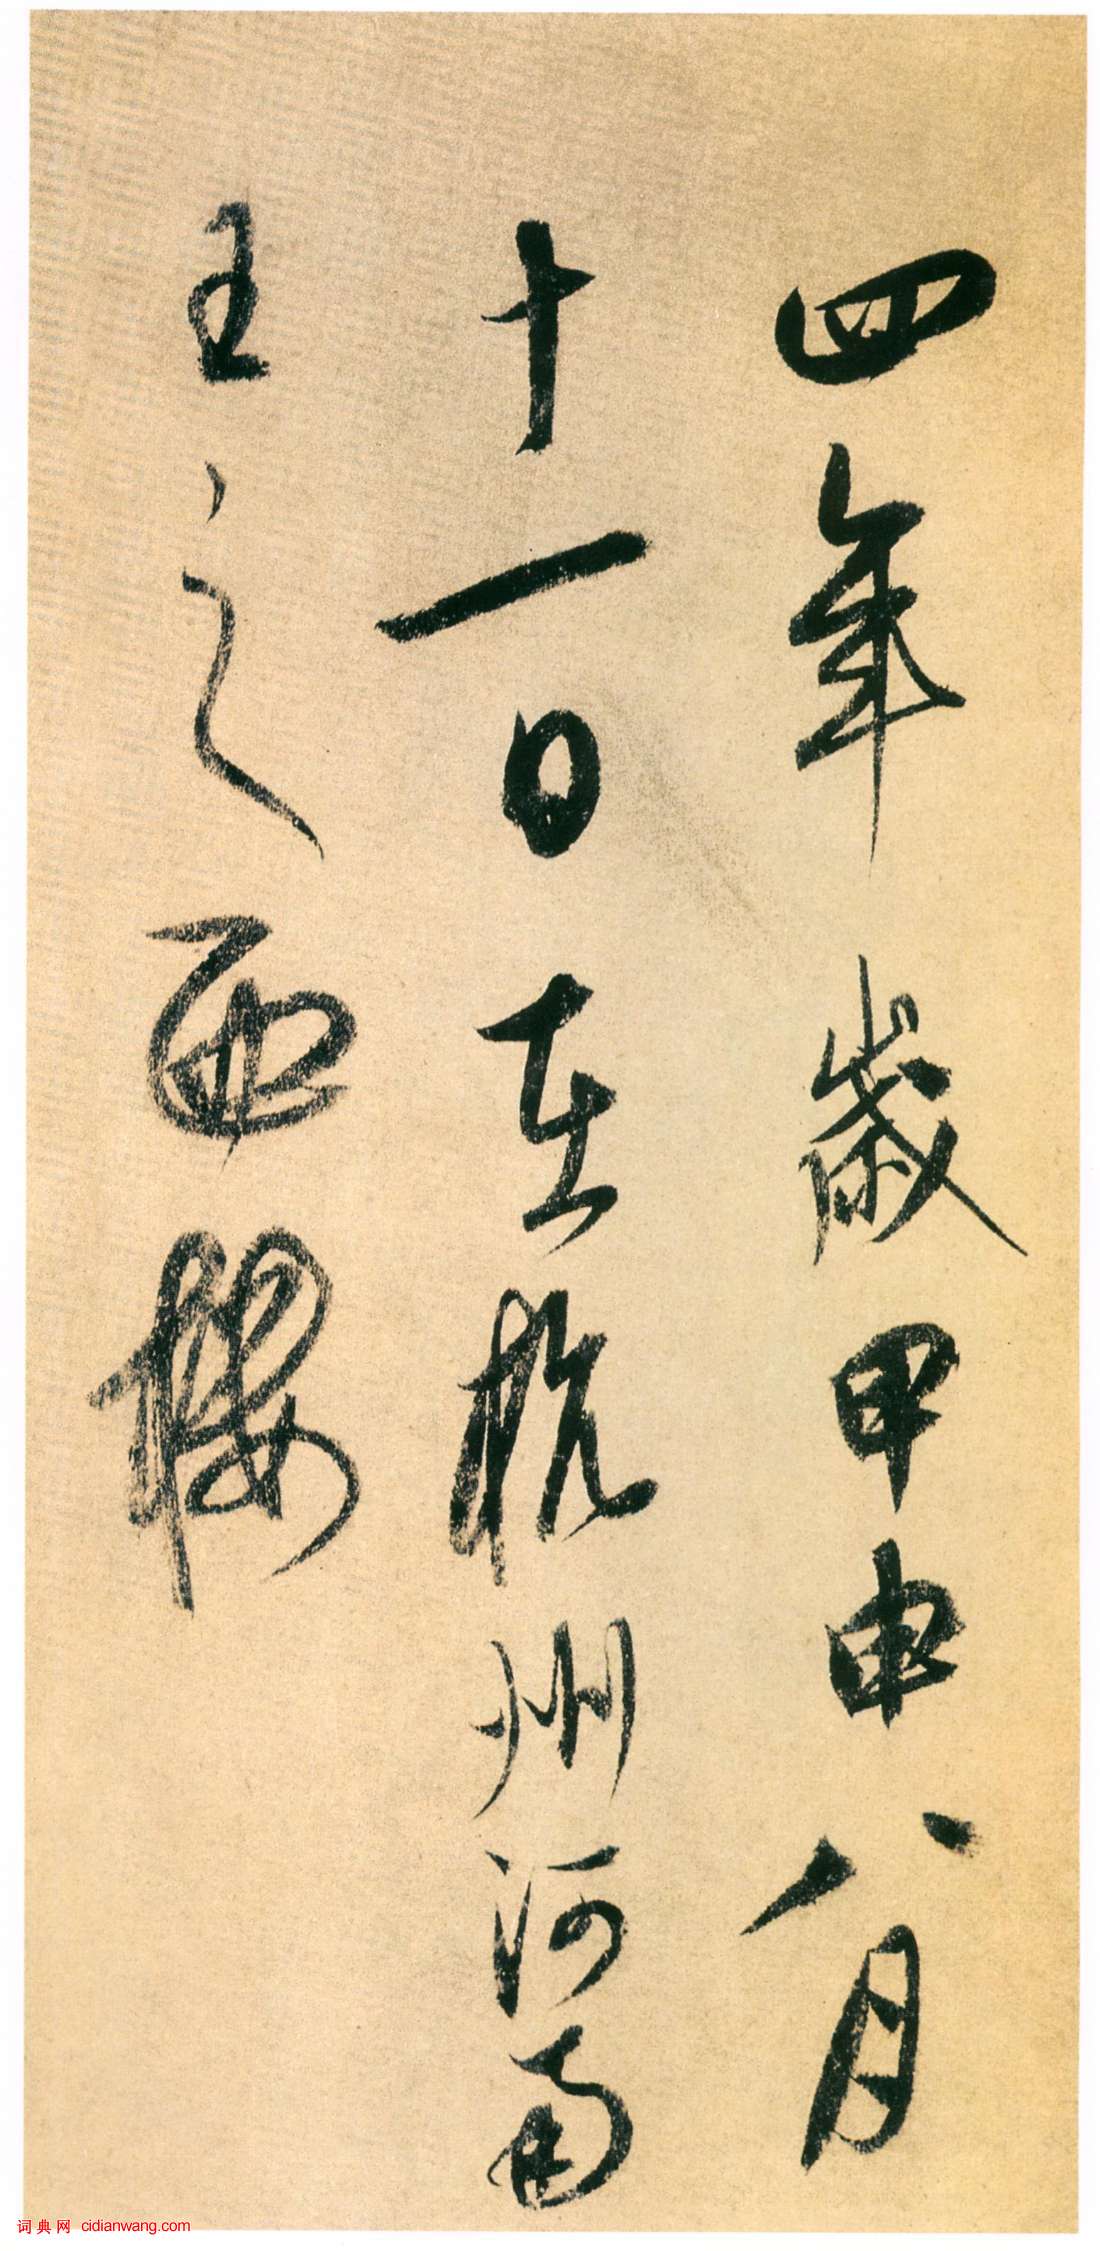 四年歲甲申八月
十一日在杭州河南
王之西樓
词典网 cidianwang.com